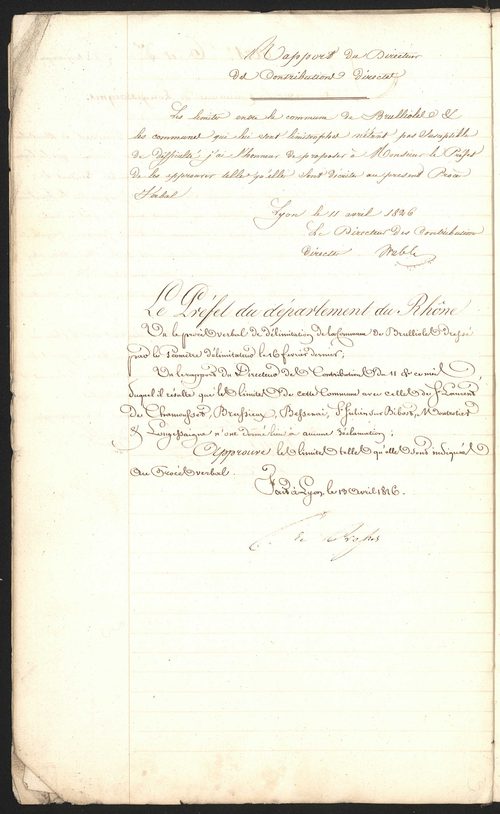 Rapport du Directeur
des Contributions Directes
Les limites entre la commune de Brulliolles &
les communes qui lui sont limitrophes n'étant pas susceptible
de difficultés, j'ai l'honneur de proposer à Monsieur le Préfet
de les approuver telles qu'elles sont décrites au present Procès
Verbal
Lyon le 11 avril 1826
Le Directeur des Contributions
Directes
Le Préfet du département du Rhône
Vu le procès verbal de délimitation de la Commune de Brulliolles dressé
par le Géomètre délimitateur le 16 février dernier;
Vu le rapport du Directeur des Contributions du 11 de ce mois
duquel il résulte que les limites de cette Commune avec celles de St Laurent
de Chamousset, Brussieux, Bessenai, St Julien sur Bibost, Montrotier
& Longessaigne n'ont donné lieu à aucune réclamation;
Approuve les limites telles qu'elles sont indiquées
au Procès verbal.
Fait à Lyon, le 13 Avril 1826.